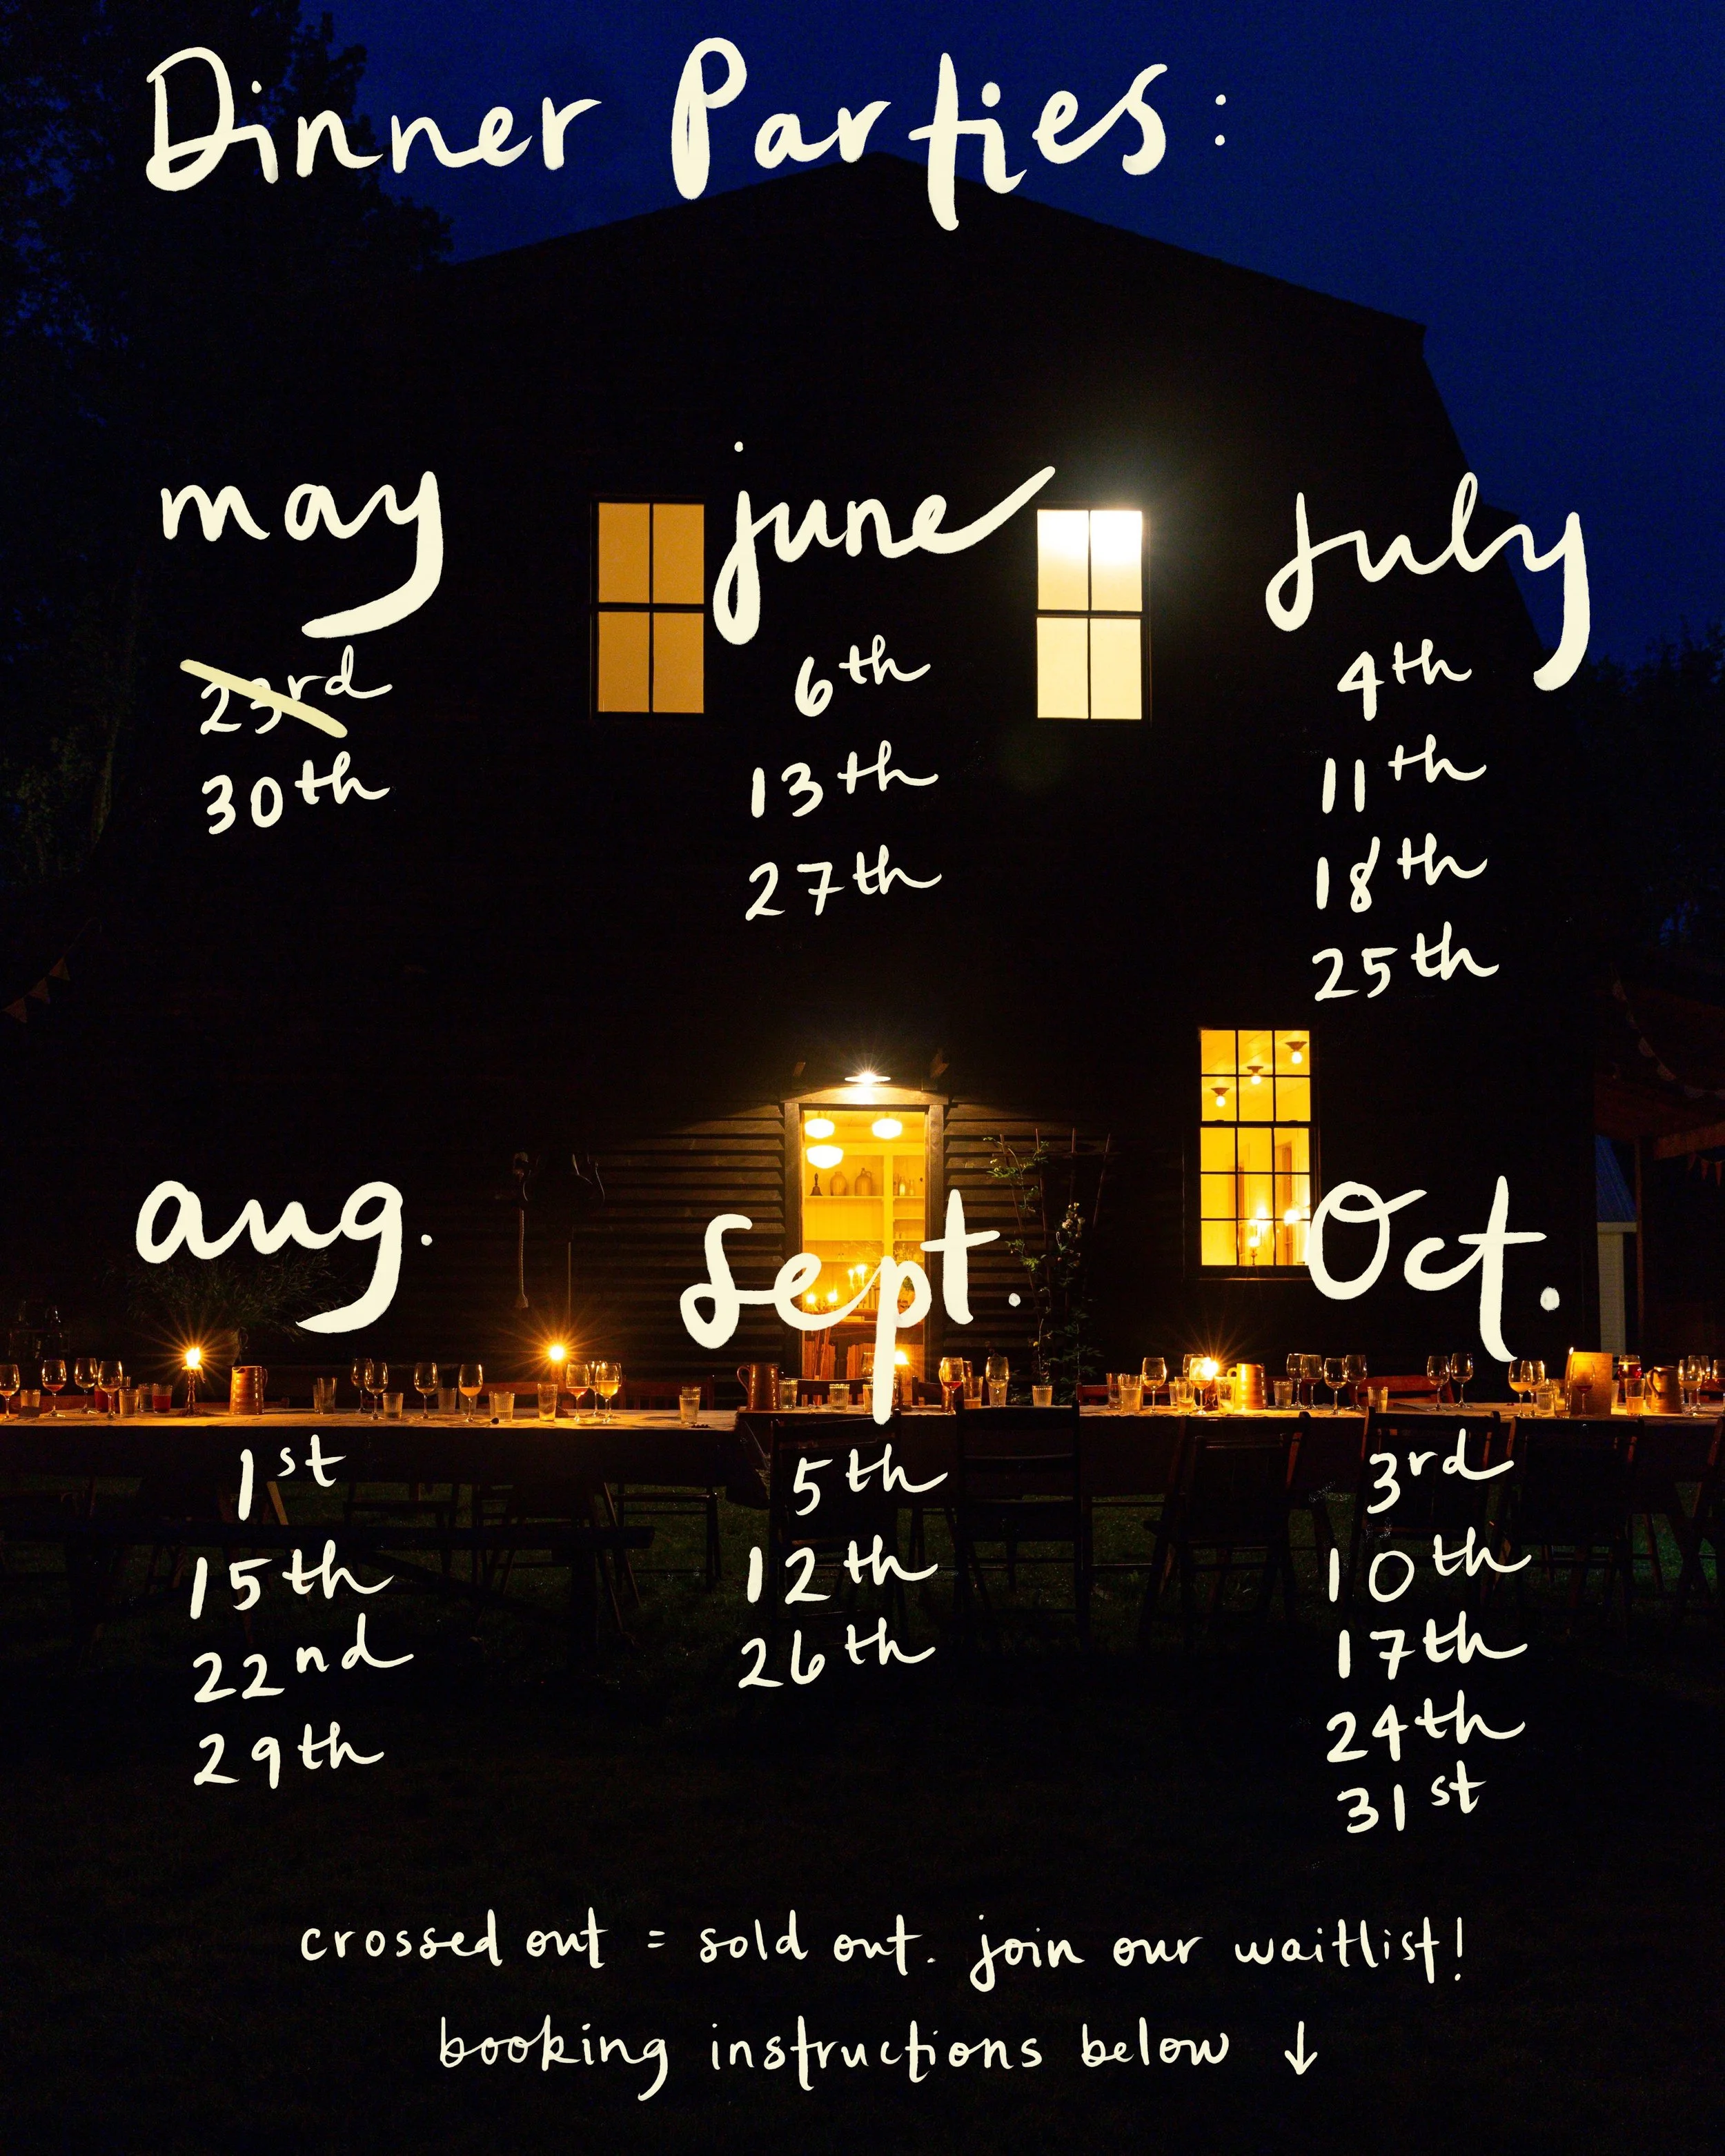 Dinner Parties:
may
23rd
30th
june
6th
13th
27th
July
4th
11th
18th
25th
aug.
1st
15th
22nd
29th
Sept.
5th
12th
26th
Oct.
3rd
10th
17th
24th
31st
crossed out = sold out. join our waitlist!
booking instructions below ↓